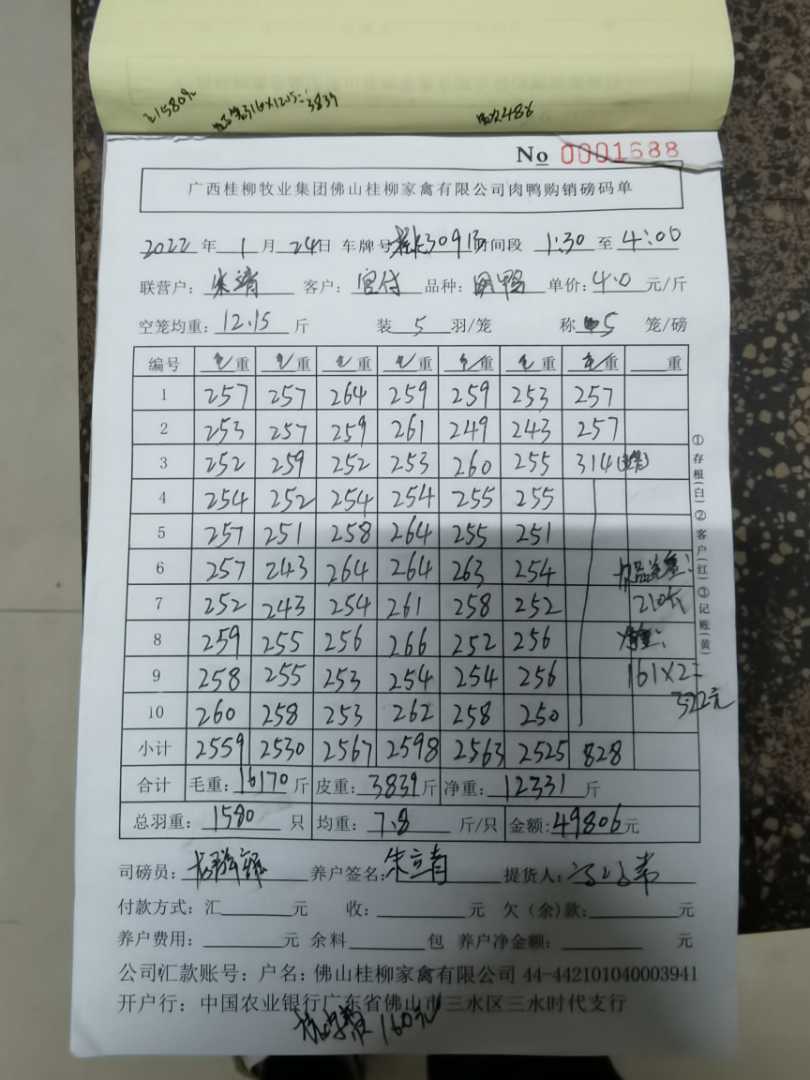 21580
316×12.15=3839
486
No 0001688
广西桂柳牧业集团佛山桂柳家禽有限公司肉鸭购销磅码单
2022 年 1 月 24 日 车牌号 3091 时间段 1:30 至 4:00
联营户: 朱靖 客户: 品种: 鸭 单价: 4.0 元/斤
空笼均重: 12.15 斤 装 5 羽/笼 称 5 笼/磅
编号 毛重 毛重 毛重 毛重 毛重 毛重 毛重 重
1 257 257 264 259 259 253 257
2 253 257 259 261 249 243 257
3 252 259 252 253 260 255 314
4 254 252 254 254 255 255
5 257 251 258 264 255 251
6 257 243 264 264 263 254
7 252 243 254 261 258 252 210斤
8 259 255 256 266 252 256
9 258 255 253 254 254 256 161×2=
10 260 258 253 262 258 250 322元
小计 2559 2530 2567 2598 2563 2525 828
合计 毛重: 16170 斤 皮重: 3839 斤 净重: 12331 斤
总羽重: 1580 只 均重: 7.8 斤/只 金额: 49806 元
①存根(白)②客户(红)③记账(黄)
司磅员: 养户签名: 提货人:
付款方式: 汇 元 收: 元 欠(余)款: 元
养户费用: 元 余料 包 养户净金额: 元
公司汇款账号: 户名: 佛山桂柳家禽有限公司 44-442101040003941
开户行: 中国农业银行广东省佛山市三水区三水时代支行
160元